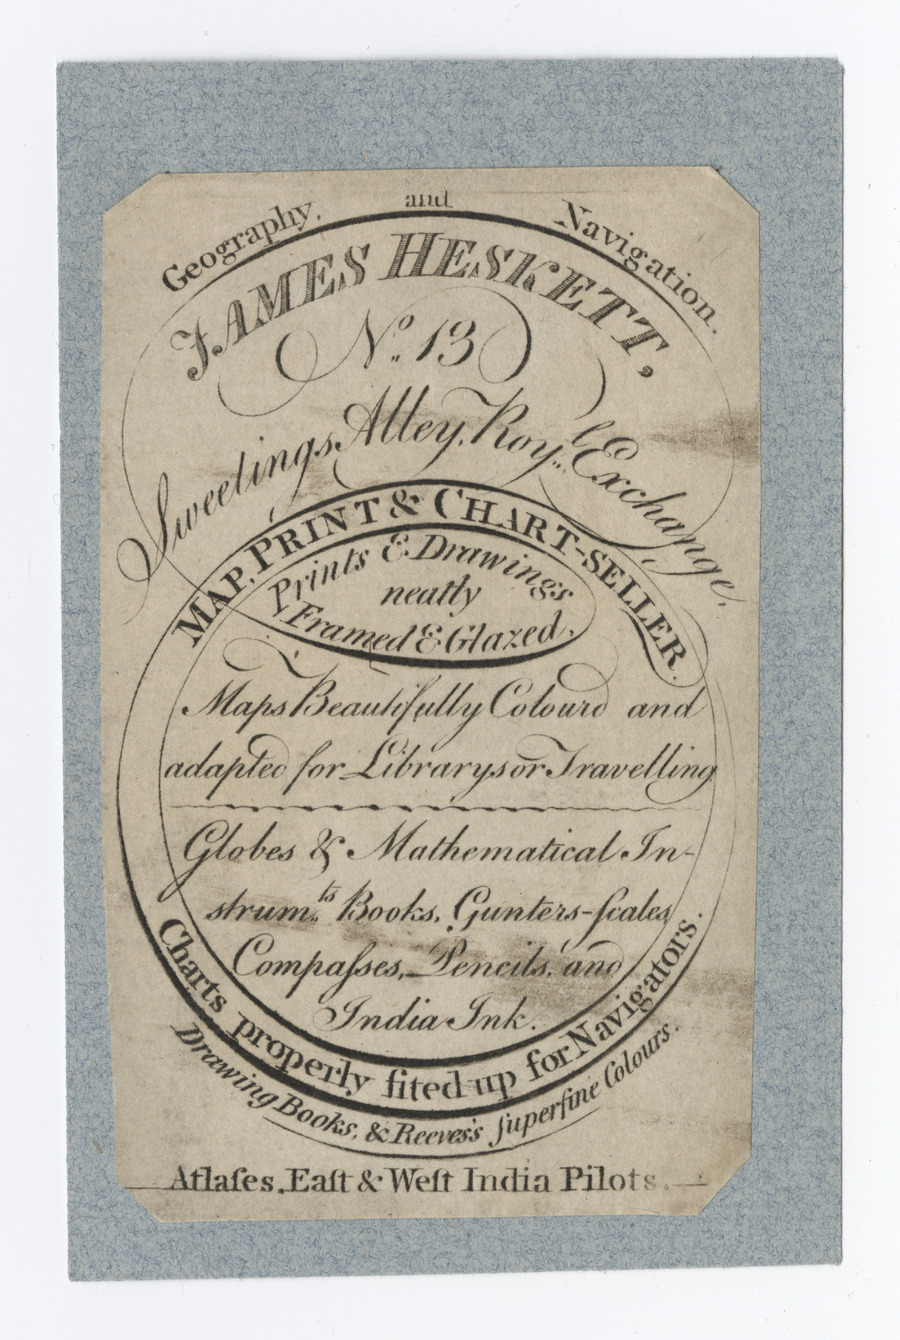 Geography, and Navigation.
JAMES HESKETT,
No. 13
Sweetings Alley, Roy.l Exchange,
MAP, PRINT & CHART-SELLER.
Prints & Drawings
neatly
Framed & Glazed.
Maps Beautifully Colourd and
adapted for Librarys or Travelling
Globes & Mathematical In-
strum.ts Books, Gunters-ſcales
Compaſses, Pencils, and
India Ink.
Charts properly fited up for Navigators.
Drawing Books, & Reeves's ſuperfine Colours.
Atlaſes, Eaſt & Weſt India Pilots.